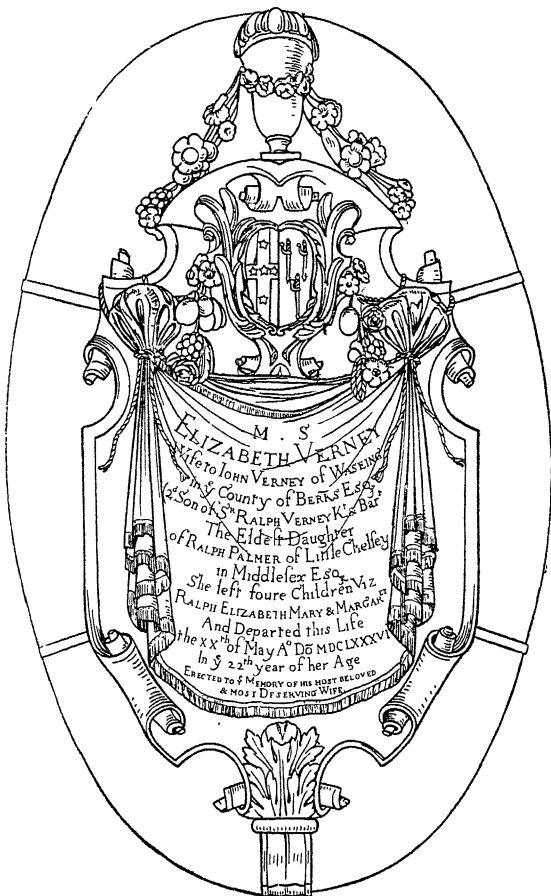 M . S
ELIZABETH VERNEY
Wife to IOHN VERNEY of WASEING
in yͤ County of BERKS Esqͬ
(2ᵈ Son of Sᴿ RALPH VERNEY Kᵗ & Barᵗ
The Eldest Daughter
of RALPH PALMER of Little Chelsey
in Middlesex Esqͬ
She left foure Children VIZ
RALPH ELIZABETH MARY & MARGARᴱᵀ
And Departed this Life
the XXᵗʰ of May Aᵒ Dō MDCLXXXVI
In yͤ 22ᵗʰ year of her Age
ERECTED TO yͤ MEMORY OF HIS MOST BELOVED
& MOST DESERVING WIFE